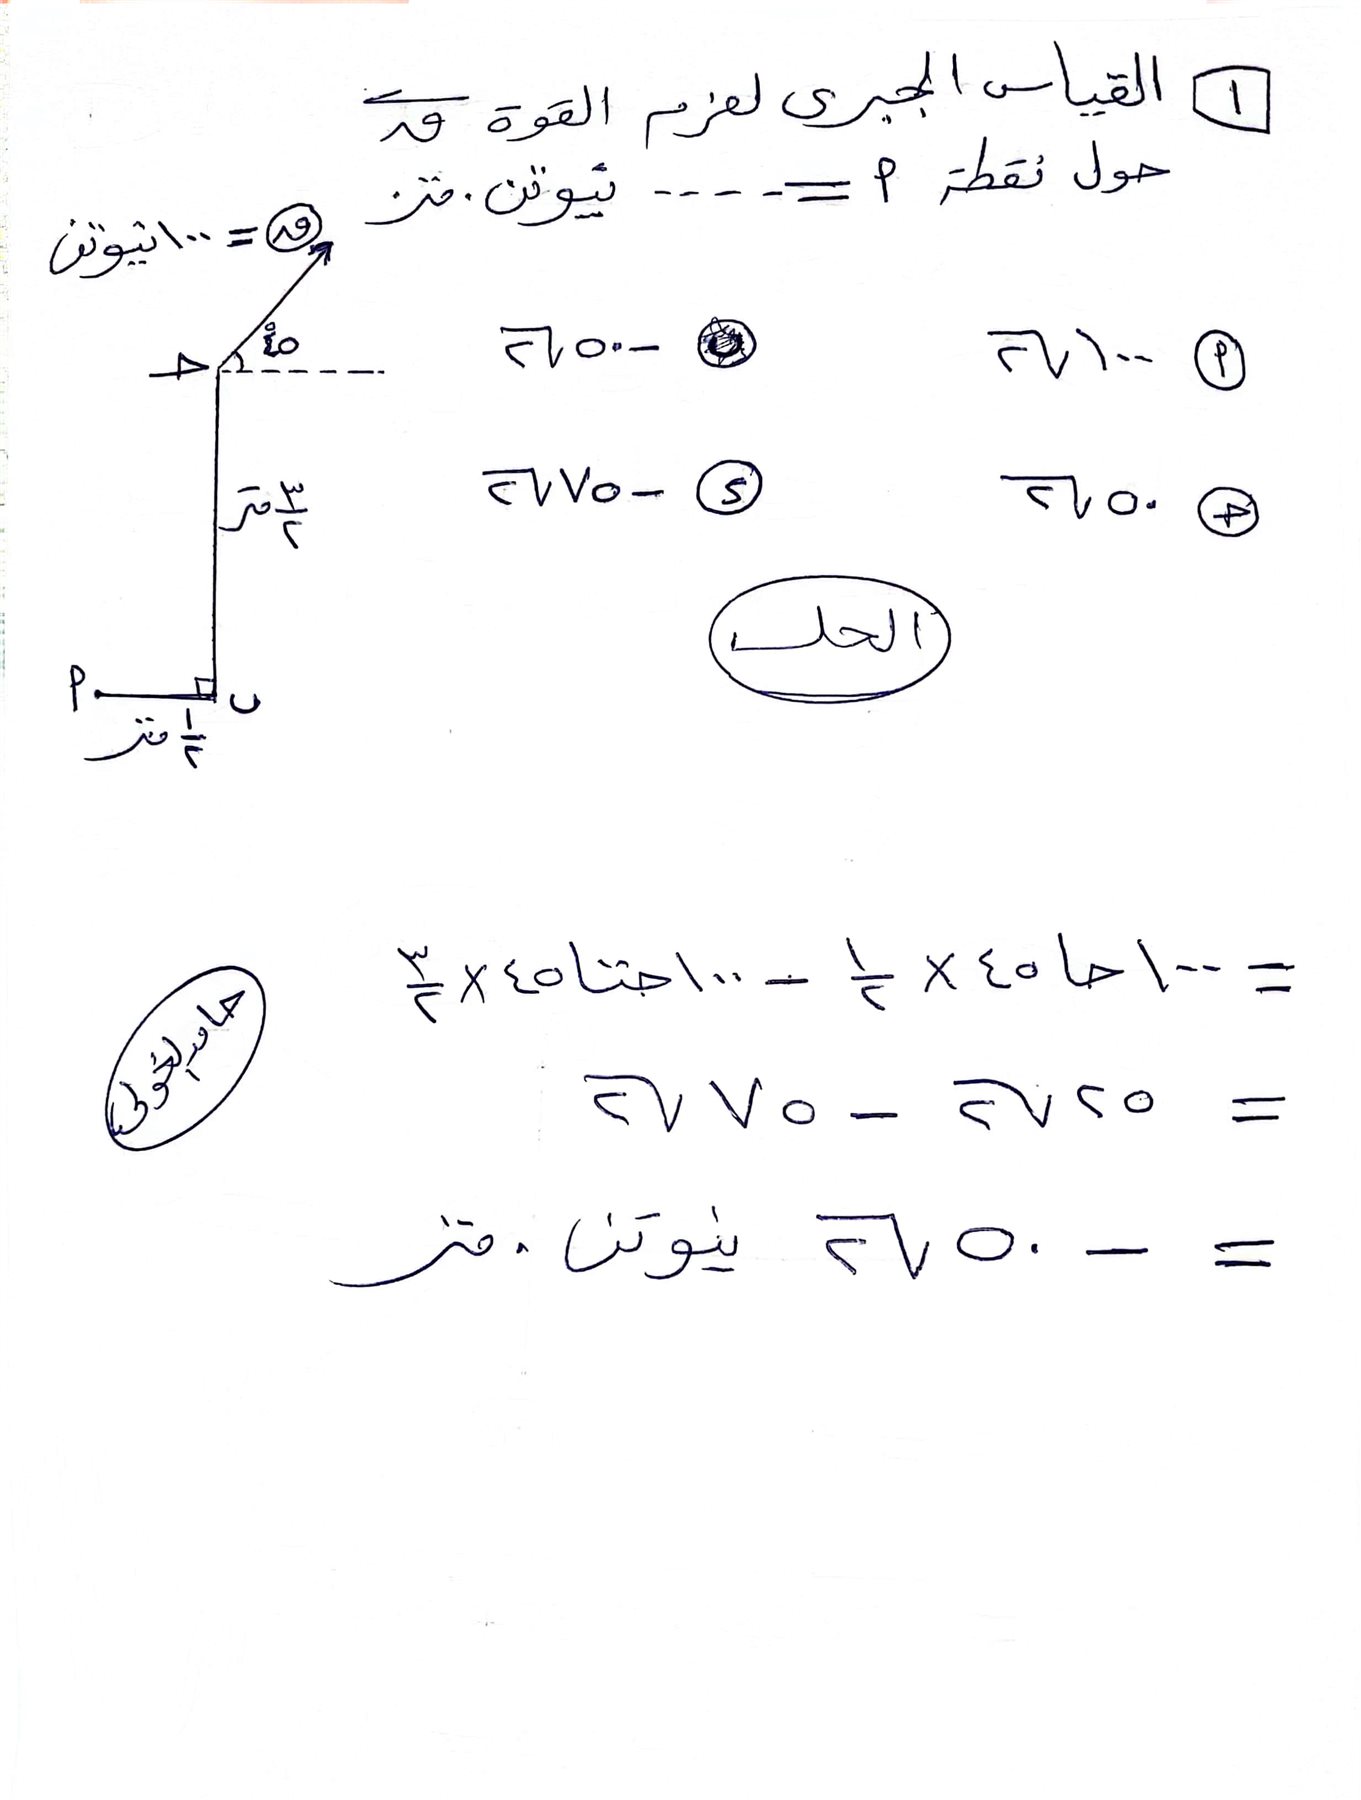 ١ القياس الجبرى لعزم القوة ق
حول نقطة م = ---- نيوتن . متر
ق = ١٠٠ نيوتن
٤٥°
ح
٣/٢ متر
م
ب
١/٢ متر
م ١٠٠√٢
ب -٥٠√٢
ح ٥٠√٢
د -٧٥√٢
الحل
= ١٠٠ حا ٤٥ × ١/٢ - ١٠٠ جتا ٤٥ × ٣/٢
= ٢٥√٢ - ٧٥√٢
= -٥٠√٢ نيوتن . متر